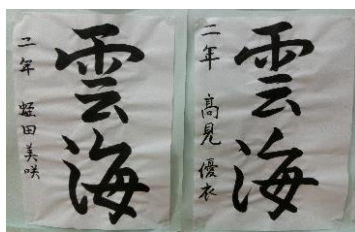 雲海
二年 高見優衣
雲海
二年 蛭田美咲